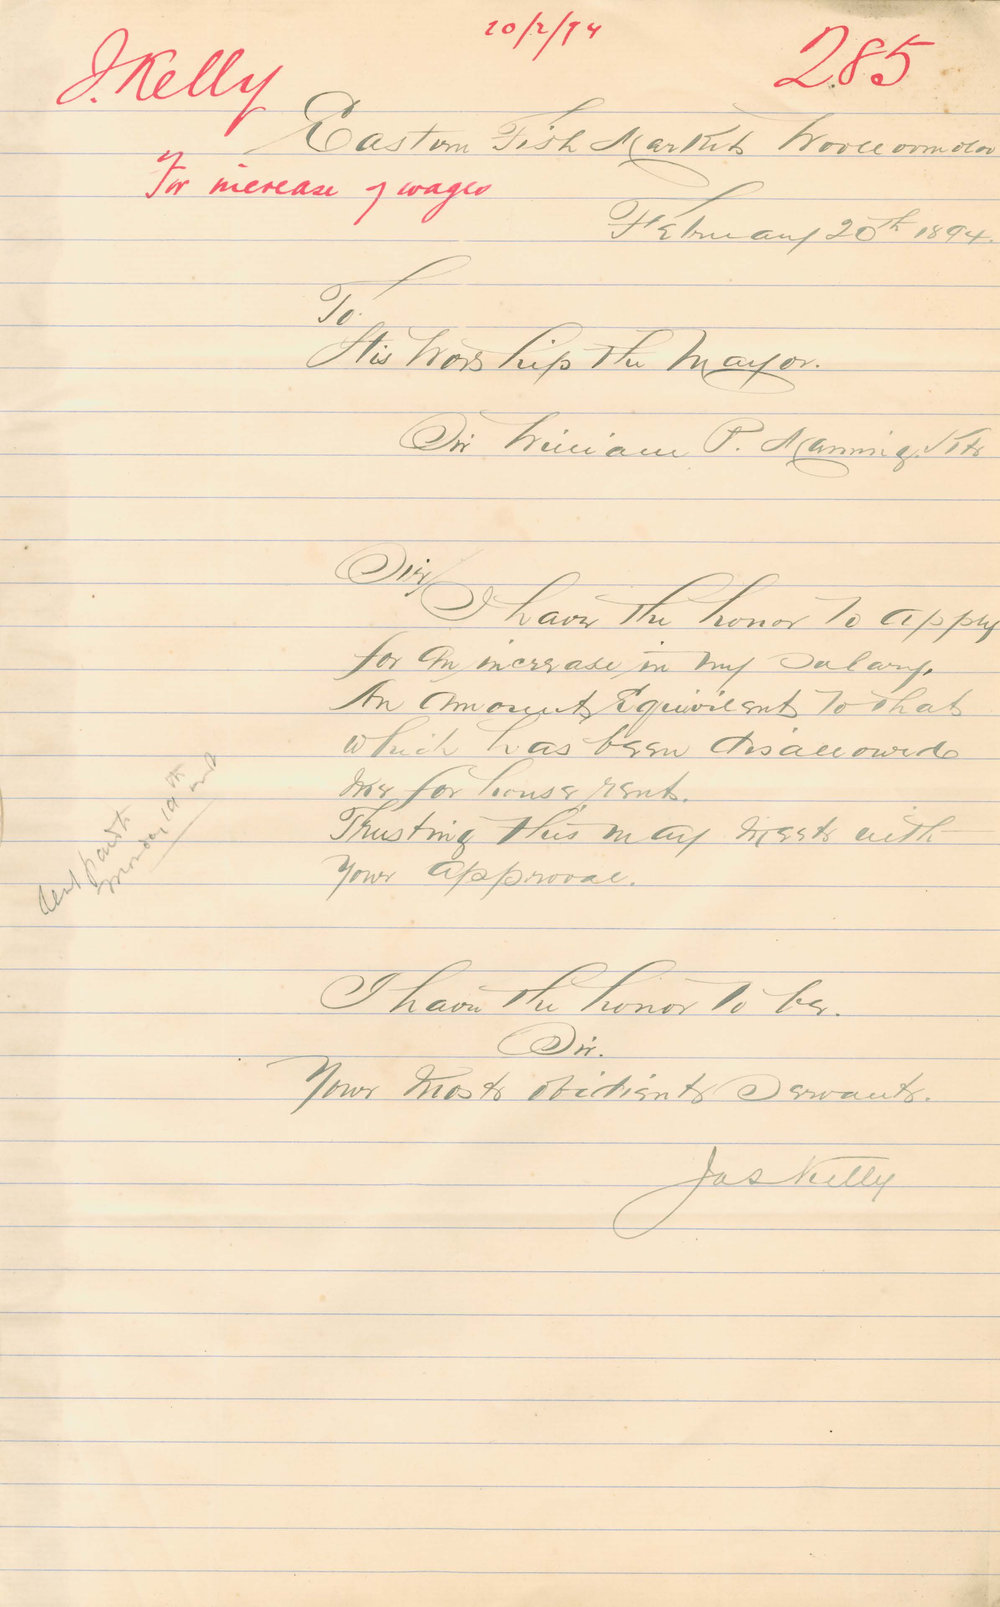 20/2/94
J. Kelly
285
Eastern Fish Market Woolloomoloo
For increase of wages
February 20th 1894.
To.
His Worship the Mayor.
Sir William P. Manning. Kt
Sir/
I have the honor to apply
for an increase in my Salary,
An amount Equivilent to that
which has been disallowed
me for house rent.
Trusting this may meet with
Your approval.
Rent paid to
Monday 19th inst
I have the honor to be.
Sir.
Your most obidient Servant.
Jas Kelly